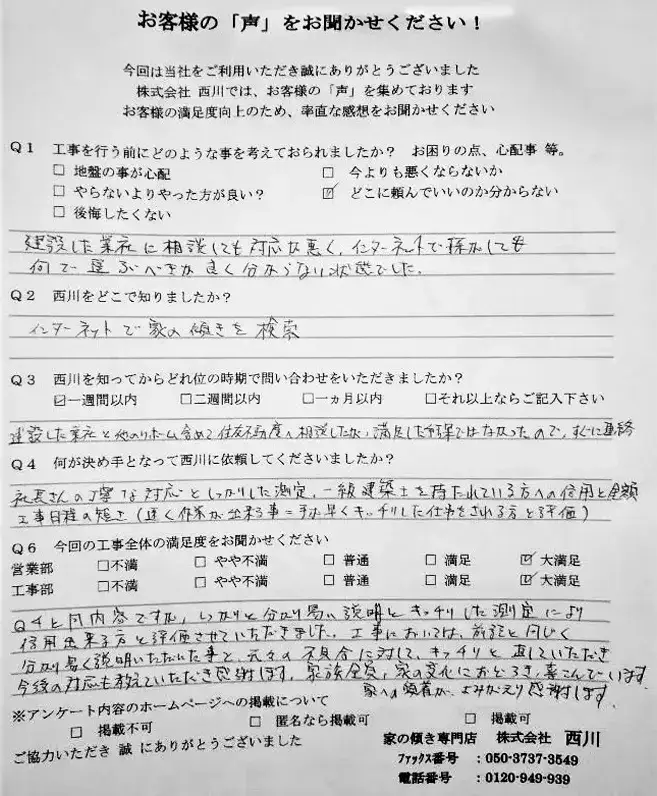 お客様の「声」をお聞かせください！
今回は当社をご利用いただき誠にありがとうございました
株式会社 西川では、お客様の「声」を集めております
お客様の満足度向上のため、率直な感想をお聞かせください
Q1 工事を行う前にどのような事を考えておられましたか？ お困りの点、心配事 等。
□ 地盤の事が心配 □ 今よりも悪くならないか
□ やらないよりやった方が良い？ ☑ どこに頼んでいいのか分からない
□ 後悔したくない
建設した業社に相談しても対応が悪く、インターネットで探がしても
何で選ぶべきか良く分からない状態でした。
Q2 西川をどこで知りましたか？
インターネットで家の傾きを検索
Q3 西川を知ってからどれ位の時期で問い合わせをいただきましたか？
☑一週間以内 □二週間以内 □一ヵ月以内 □それ以上ならご記入下さい
建設した業社と他のリホーム含めて 相談したが、満足した結果ではなかったので、すぐに連絡
Q4 何が決め手となって西川に依頼してくださいましたか？
社長さんの丁寧な対応としっかりした測定、一級建築士を持たれている方への信用と金額
工事日程の短さ（速く作業が出来る事＝手が早くキッチリした仕事をされる方と評価）
Q6 今回の工事全体の満足度をお聞かせください
営業部 □不満 □ やや不満 □ 普通 □ 満足 ☑ 大満足
工事部 □不満 □ やや不満 □ 普通 □ 満足 ☑ 大満足
Q4と同内容ですが、しっかりと分かり易い説明とキッチリした測定により
信用出来る方と評価させていただきました。工事においては、前記と同じく
分かり易く説明いただいた事と、元々の不具合に対して、キッチリと直していただき
今後の対応も教えていただき感謝します。家族全員、家の変化におどろき、喜こんでいます。
家への愛着が、よみがえり感謝します。
※アンケート内容のホームページへの掲載について
□ 掲載不可 □ 匿名なら掲載可 □ 掲載可
ご協力いただき 誠 にありがとうございました
家の傾き専門店 株式会社 西川
ﾌｧｯｸｽ番号 ：050-3737-3549
電話番号 ：0120-949-939